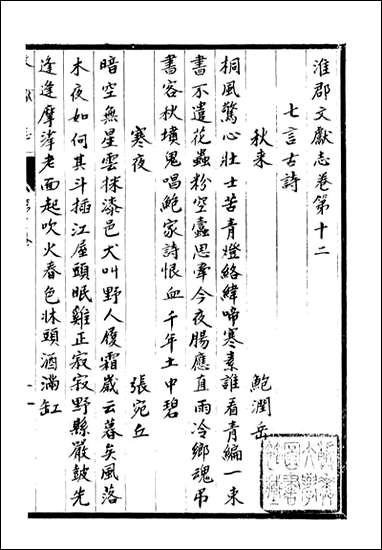 淮郡文獻志卷第十二
七言古詩
秋來 鮑溶岳
桐風驚心壯士苦青燈絡緯啼寒素誰看青編一束
書不遣花蟲粉空蠹思牽今夜腸應直雨冷鄉魂弔
書客秋墳鬼唱鮑家詩恨血千年土中碧
寒夜 張宛丘
暗空無星雲抹漆邑犬叫野人履霜歲云暮矣風落
木夜如何其斗插江屋頭眠雞正寂寂野縣嚴鼓先
逢逢摩挲老面起吹火春色牀頭酒滿缸